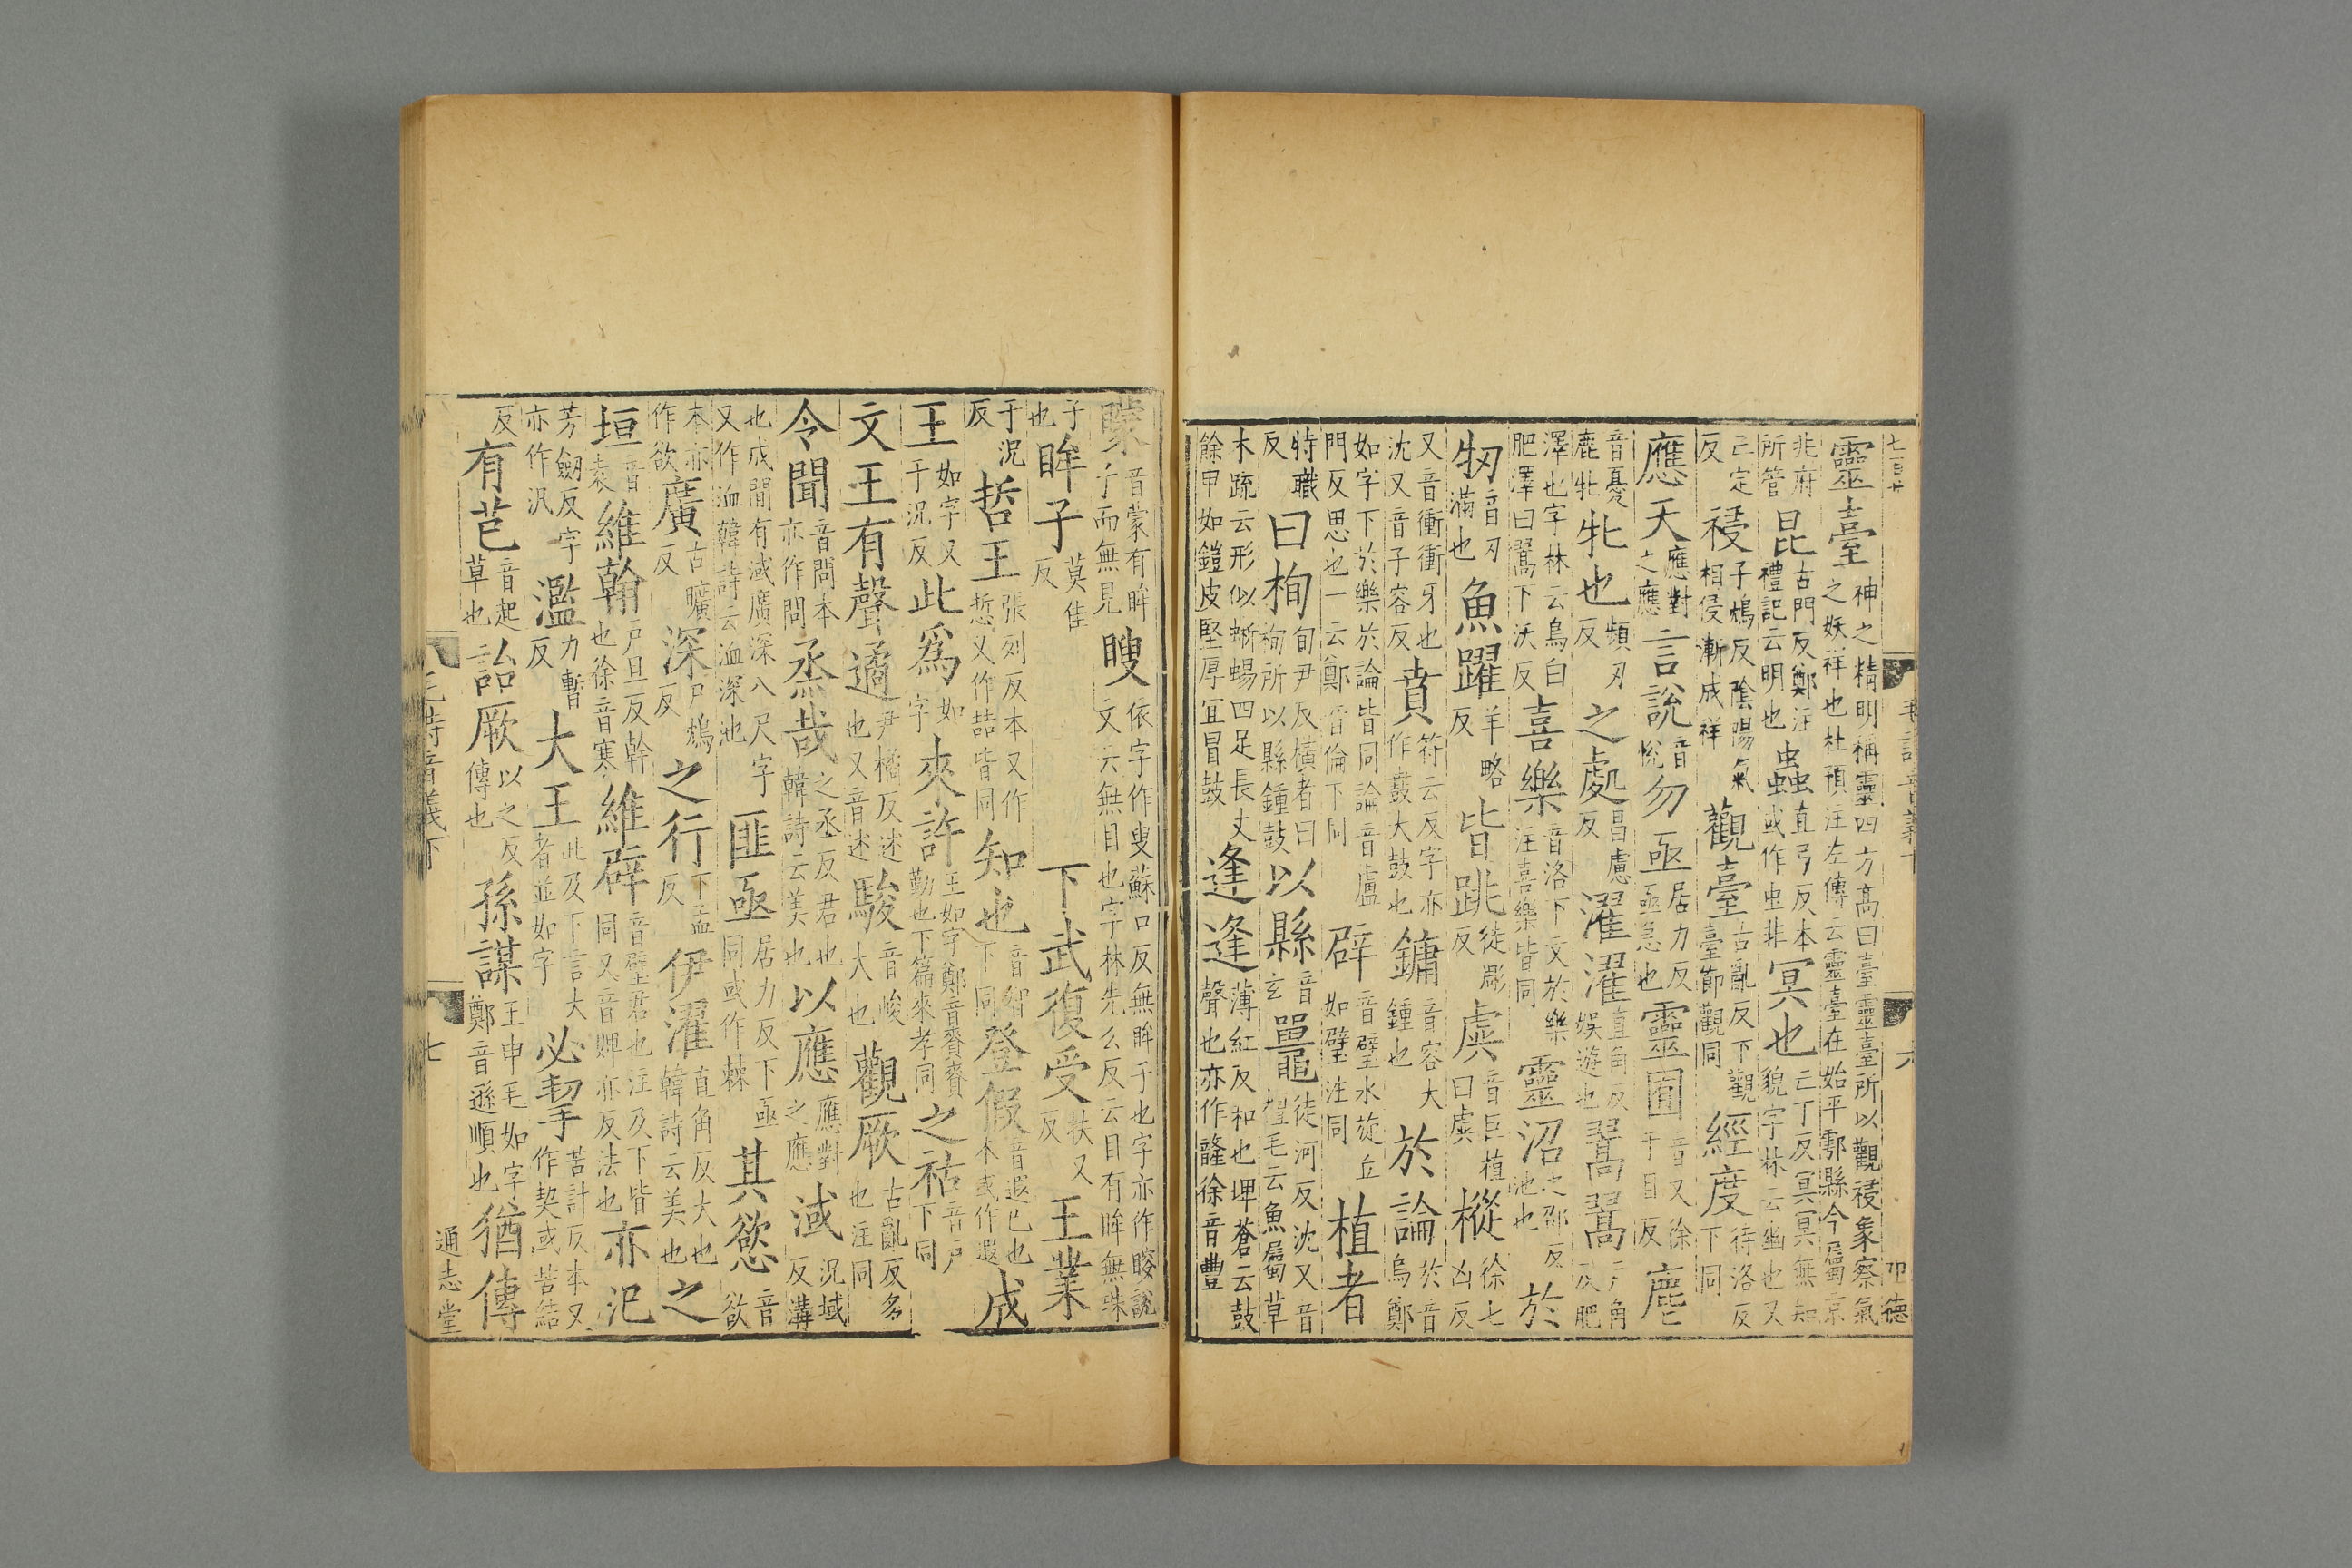 靈臺神之精明稱靈四方高曰臺靈臺所以觀祲象察氣之妖祥也杜預注左傳云靈臺在始平鄠縣今屬京
兆府所管昆古門反鄭注禮記云明也蟲直弓反本或作虫非冥也亡丁反冥冥無知貌字林云幽也又
亡定反祲子鴆反陰陽氣相侵漸成祥觀臺古亂反下觀臺節觀同經度待洛反下同
應天應對之應言說音悅勿亟居力反亟急也靈囿音又徐于目反麀
音憂鹿牝牝也頻刃反之處昌慮反濯濯直角反娛遊也翯翯戶角反肥
澤也字林云鳥白肥澤曰翯下沃反喜樂音洛下文於樂注喜樂皆同靈沼之邵反池也於
牣音刃滿也魚躍羊略反皆跳徒彫反虡音巨植曰虡樅徐七凶反
又音衝衝牙也沈又音子容反賁符云反字亦作鼖大鼓也鏞音容大鍾也於論於音烏鄭
如字下於樂於論皆同論音盧門反思也一云鄭音倫下同辟音璧水旋丘如璧注同植者
特職反曰栒旬尹反橫者曰栒所以縣鍾鼓以縣音玄鼉徒河反沈又音檀毛云魚屬草
木疏云形似蜥蜴四足長丈餘甲如鎧皮堅厚宜冒鼓逢逢薄紅反和也埤蒼云鼓聲也亦作韸徐音豐
七百廿
毛詩音義下
六
卬德
矇音蒙有眸子而無見瞍依字作叟蘇口反無眸子也字亦作䁖說文云無目也字林先么反云目有眸無珠
子也眸子莫侯反下武復受扶又反王業
于況反哲王張列反本又作悊又作喆皆同知也音智下同登假音遐已也本或作遐成
王如字又于況反此爲如字來許王如字鄭音賚賚勤也下篇來孝同之祜音戶下同
文王有聲遹尹橘反述也又音述駿音峻大也觀厥古亂反多也注同
令聞音問本亦作問烝哉之丞反君也韓詩云美也以應應對之應淢況域反溝
也成閒有淢廣深八尺字又作洫韓詩云洫深池匪亟居力反下亟同或作棘其慾音欲
本亦作欲廣古曠反深尸鴆反之行下孟反伊濯直角反大也韓詩云美也之
垣音袁維翰戶旦反幹也徐音寒維辟音璧君也注及下皆同又音婢亦反法也亦汜
芳劒反字亦作汎濫力暫反大王此及下言大者並如字必挈苦計反本又作契或苦結
反有芑音起草也詒厥以之反傳也孫謀王申毛如字鄭音遜順也猶傳
毛詩音義下
七
通志堂